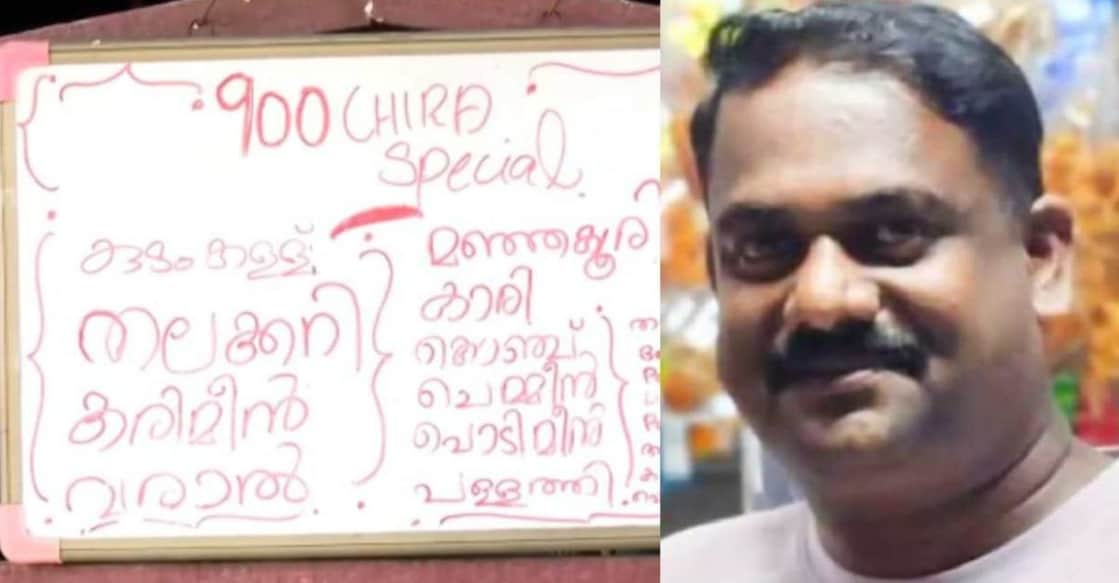 900 CHIRA
Special
കുടംകള്ള്
തലക്കറി
കരിമീൻ
വരാൽ
മഞ്ഞക്കൂരി
കാരി
കൊഞ്ച്
ചെമ്മീൻ
പൊടിമീൻ
പള്ളത്തി